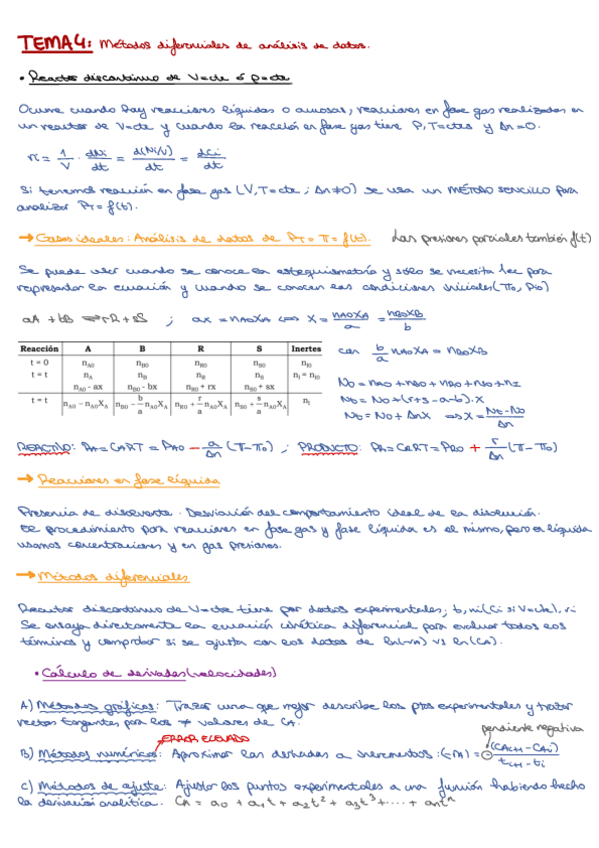 TEMA 4: Métodos diferenciales de análisis de datos.
• Reactor discontinuo de V=cte ó ρ=cte
Ocurre cuando hay reacciones líquidas o acuosas, reacciones en fase gas realizadas en
un reactor de V=cte y cuando la reacción en fase gas tiene P,T=ctes y Δn=0.
ri = 1/V · dNi/dt = d(Ni/V)/dt = dCi/dt
Si tenemos reacción en fase gas (V,T=cte ; Δn≠0) se usa un MÉTODO SENCILLO para
analizar PT=f(t).
→ Gases ideales: Análisis de datos de PT = π = f(t). Las presiones parciales también f(t)
Se puede usar cuando se conoce la estequiometría y sólo se necesita 1 ec para
representar la ecuación y cuando se conocen las condiciones iniciales (π0, Pi0)
aA + bB ⇌ rR + sS ; ax = nA0XA ⇔ X = nA0XA/a = nB0XB/b
Reacción A B R S Inertes
t = 0 nA0 nB0 nR0 nS0 nI0
t = t nA nB nR nS nI = nI0
nA0 - ax nB0 - bx nR0 + rx nS0 + sx
t = t nA0 – nA0XA nB0 – b/a nA0XA nR0 + r/a nA0XA nS0 + s/a nA0XA nI
con b/a nA0XA = nB0XB
N0 = nA0 + nB0 + nR0 + nS0 + nI
Nt = N0 + (r+s-a-b).X
Nt = N0 + ΔnX ⇔ X = Nt-N0/Δn
REACTIVO: PA = CART = PA0 - a/Δn (π-π0) ; PRODUCTO: PR = CRRT = PR0 + r/Δn (π-π0)
→ Reacciones en fase líquida
Presencia de disolvente. Desviación del comportamiento ideal de la disolución.
El procedimiento para reacciones en fase gas y fase líquida es el mismo, pero en líquida
usamos concentraciones y en gas presiones.
→ Métodos diferenciales
Reactor discontinuo de V=cte tiene por datos experimentales; ni (Ci si V=cte), ri
Se ensaya directamente la ecuación cinética diferencial para evaluar todos los
términos y comprobar si se ajusta con los datos de ln(-rA) vs ln(CA).
• Cálculo de derivadas (velocidades)
A) Métodos gráficos: Trazar curva que mejor describe los ptos experimentales y trazar
rectas tangentes para los ≠ valores de CA.
pendiente negativa
ERROR ELEVADO
B) Métodos numéricos: Aproximar las derivadas a incrementos: (-rA) = - (CAi+1 - CAi)/ti+1 - ti
C) Métodos de ajuste: Ajustar los puntos experimentales a una función habiendo hecho
la derivación analítica. CA = a0 + a1t + a2t² + a3t³ + .... + antⁿ